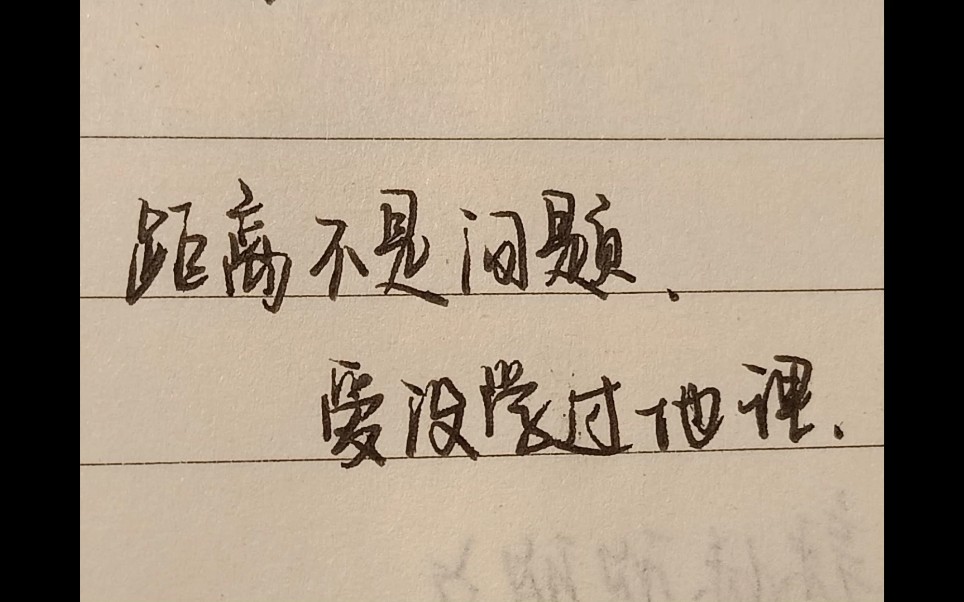 距离不是问题.
爱没学过地理.